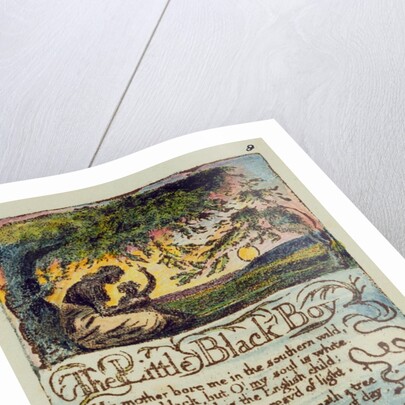 9
The Little Black Boy
My mother bore me in the southern wild,
black, but O! my soul is white,
is the English child:
of light.
a tree
day